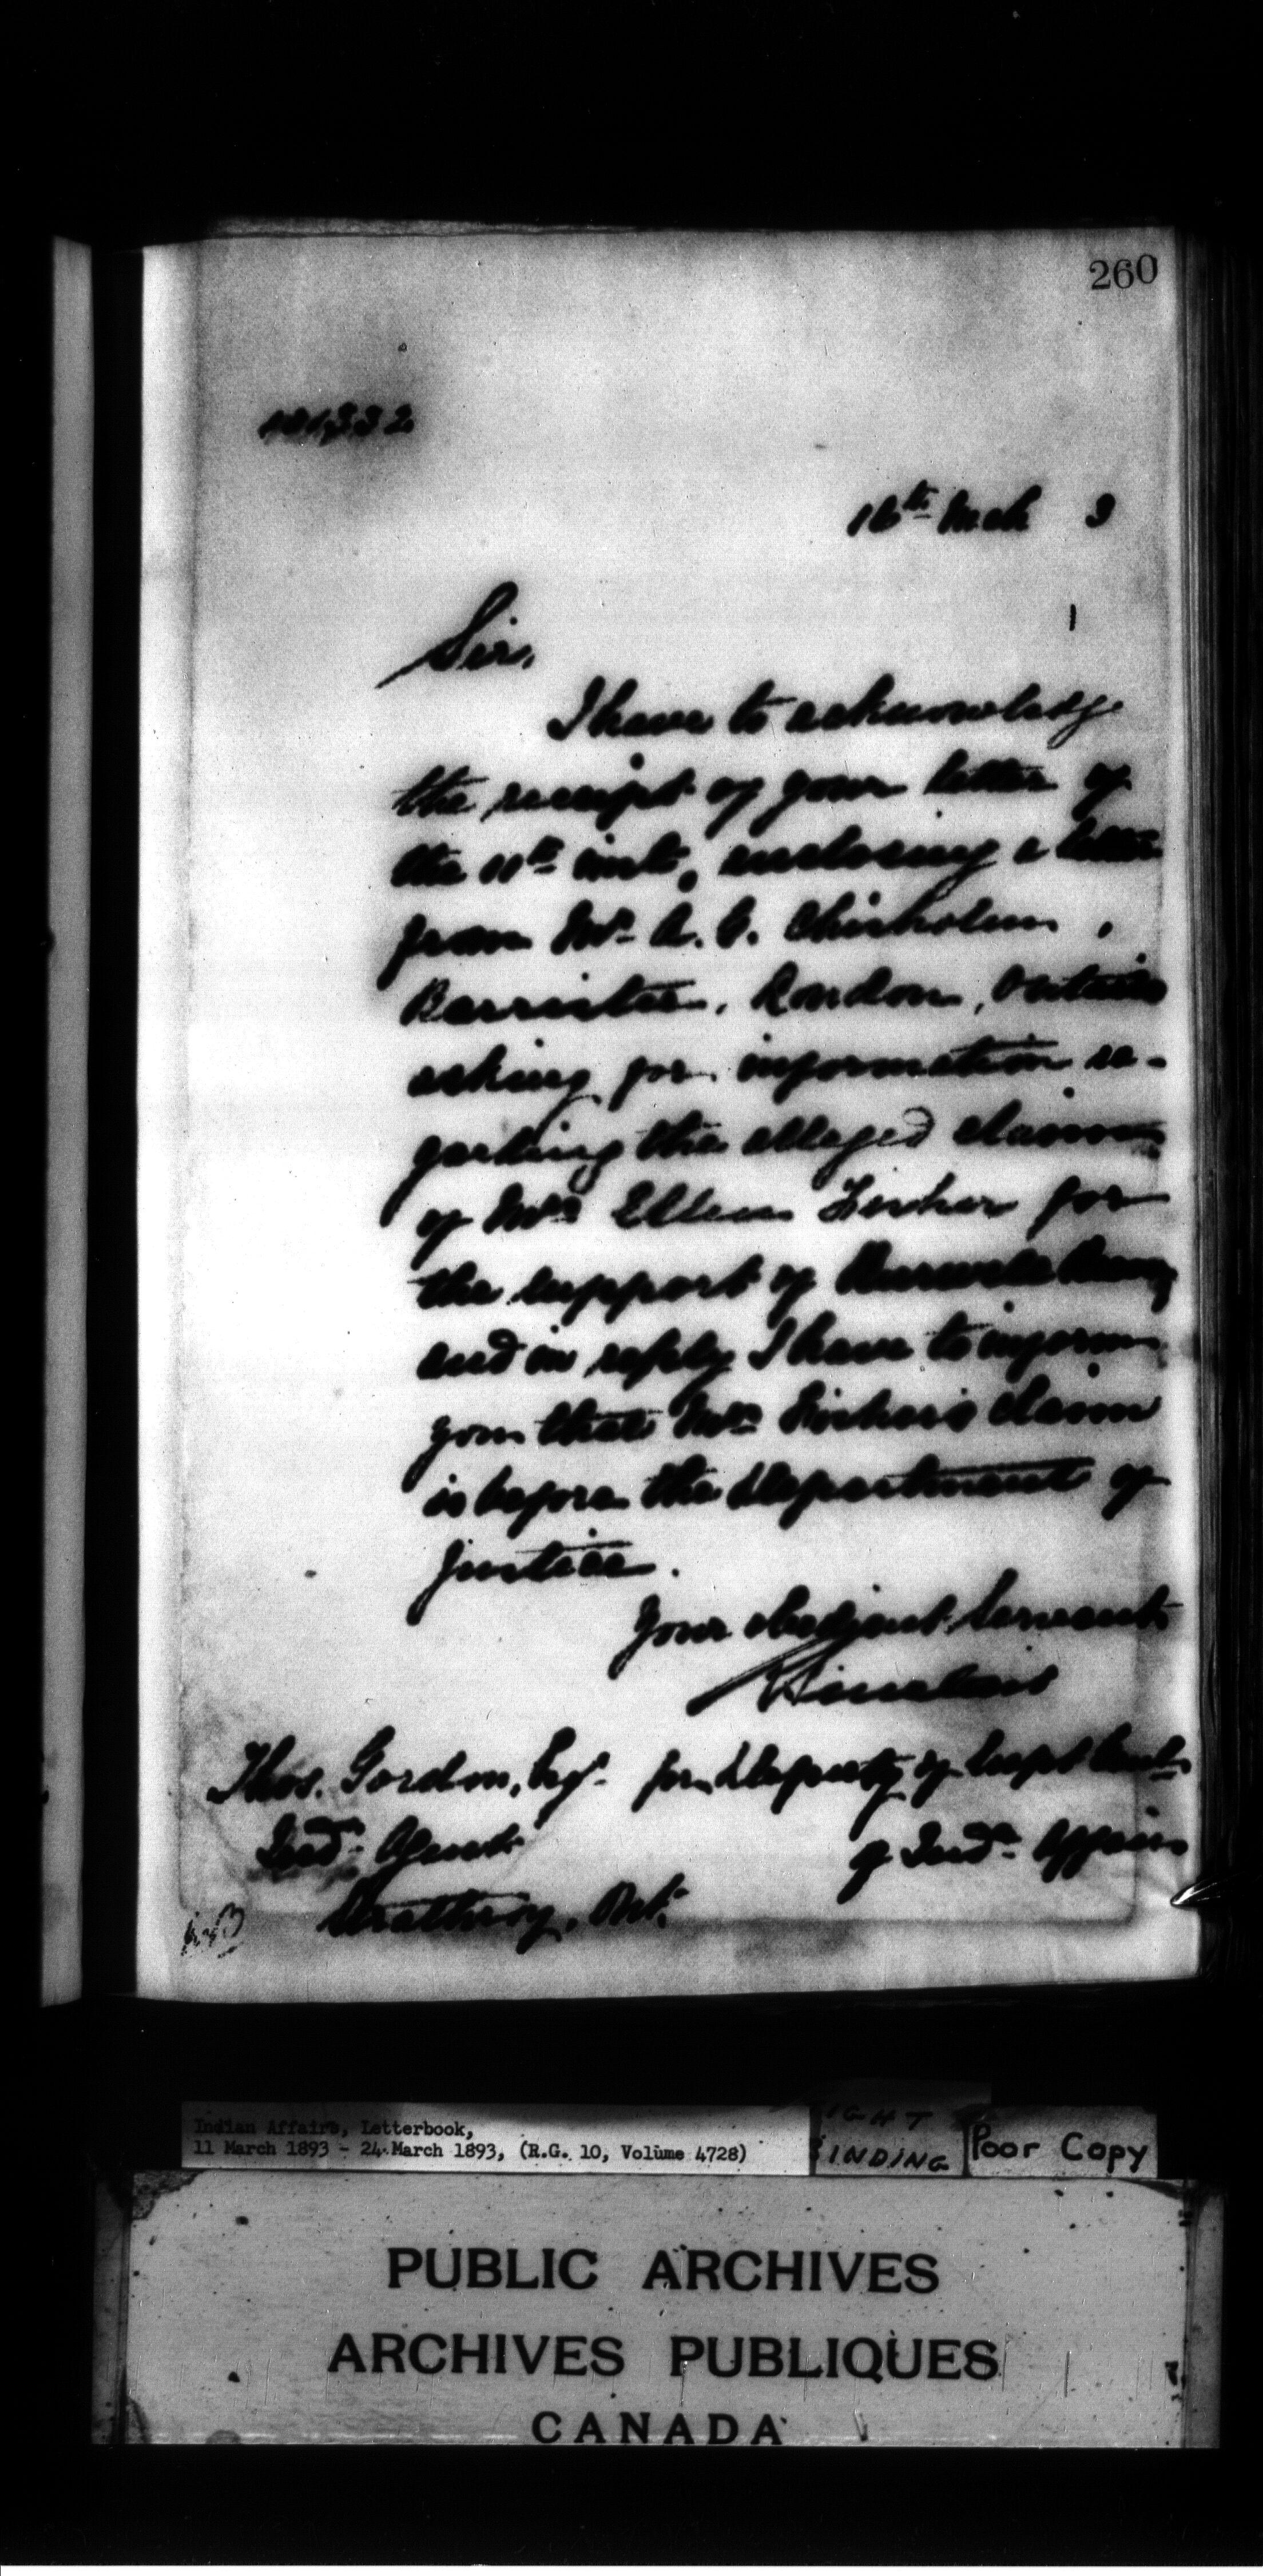 260
16th Mch 3
Sir,
I have to acknowledge
the receipt of your letter of
the 11th inst, enclosing a letter
from Mr. A. G. Chisholm,
Barrister, London, Ontario
asking for information re-
garding the alleged claim
of Mrs Ellen Fisher for
the support of
and in reply I have to inform
you that Mrs Fisher's claim
is before the Department of
Justice.
Your obedient Servant
Sinclair
Thos. Gordon, Esq. for Deputy of Supt Genl
Indn. Agent of Indn. Affairs
Strathroy, Ont.
Indian Affairs, Letterbook,
11 March 1893 - 24 March 1893, (R.G. 10, Volume 4728)
Poor Copy
PUBLIC ARCHIVES
ARCHIVES PUBLIQUES
CANADA